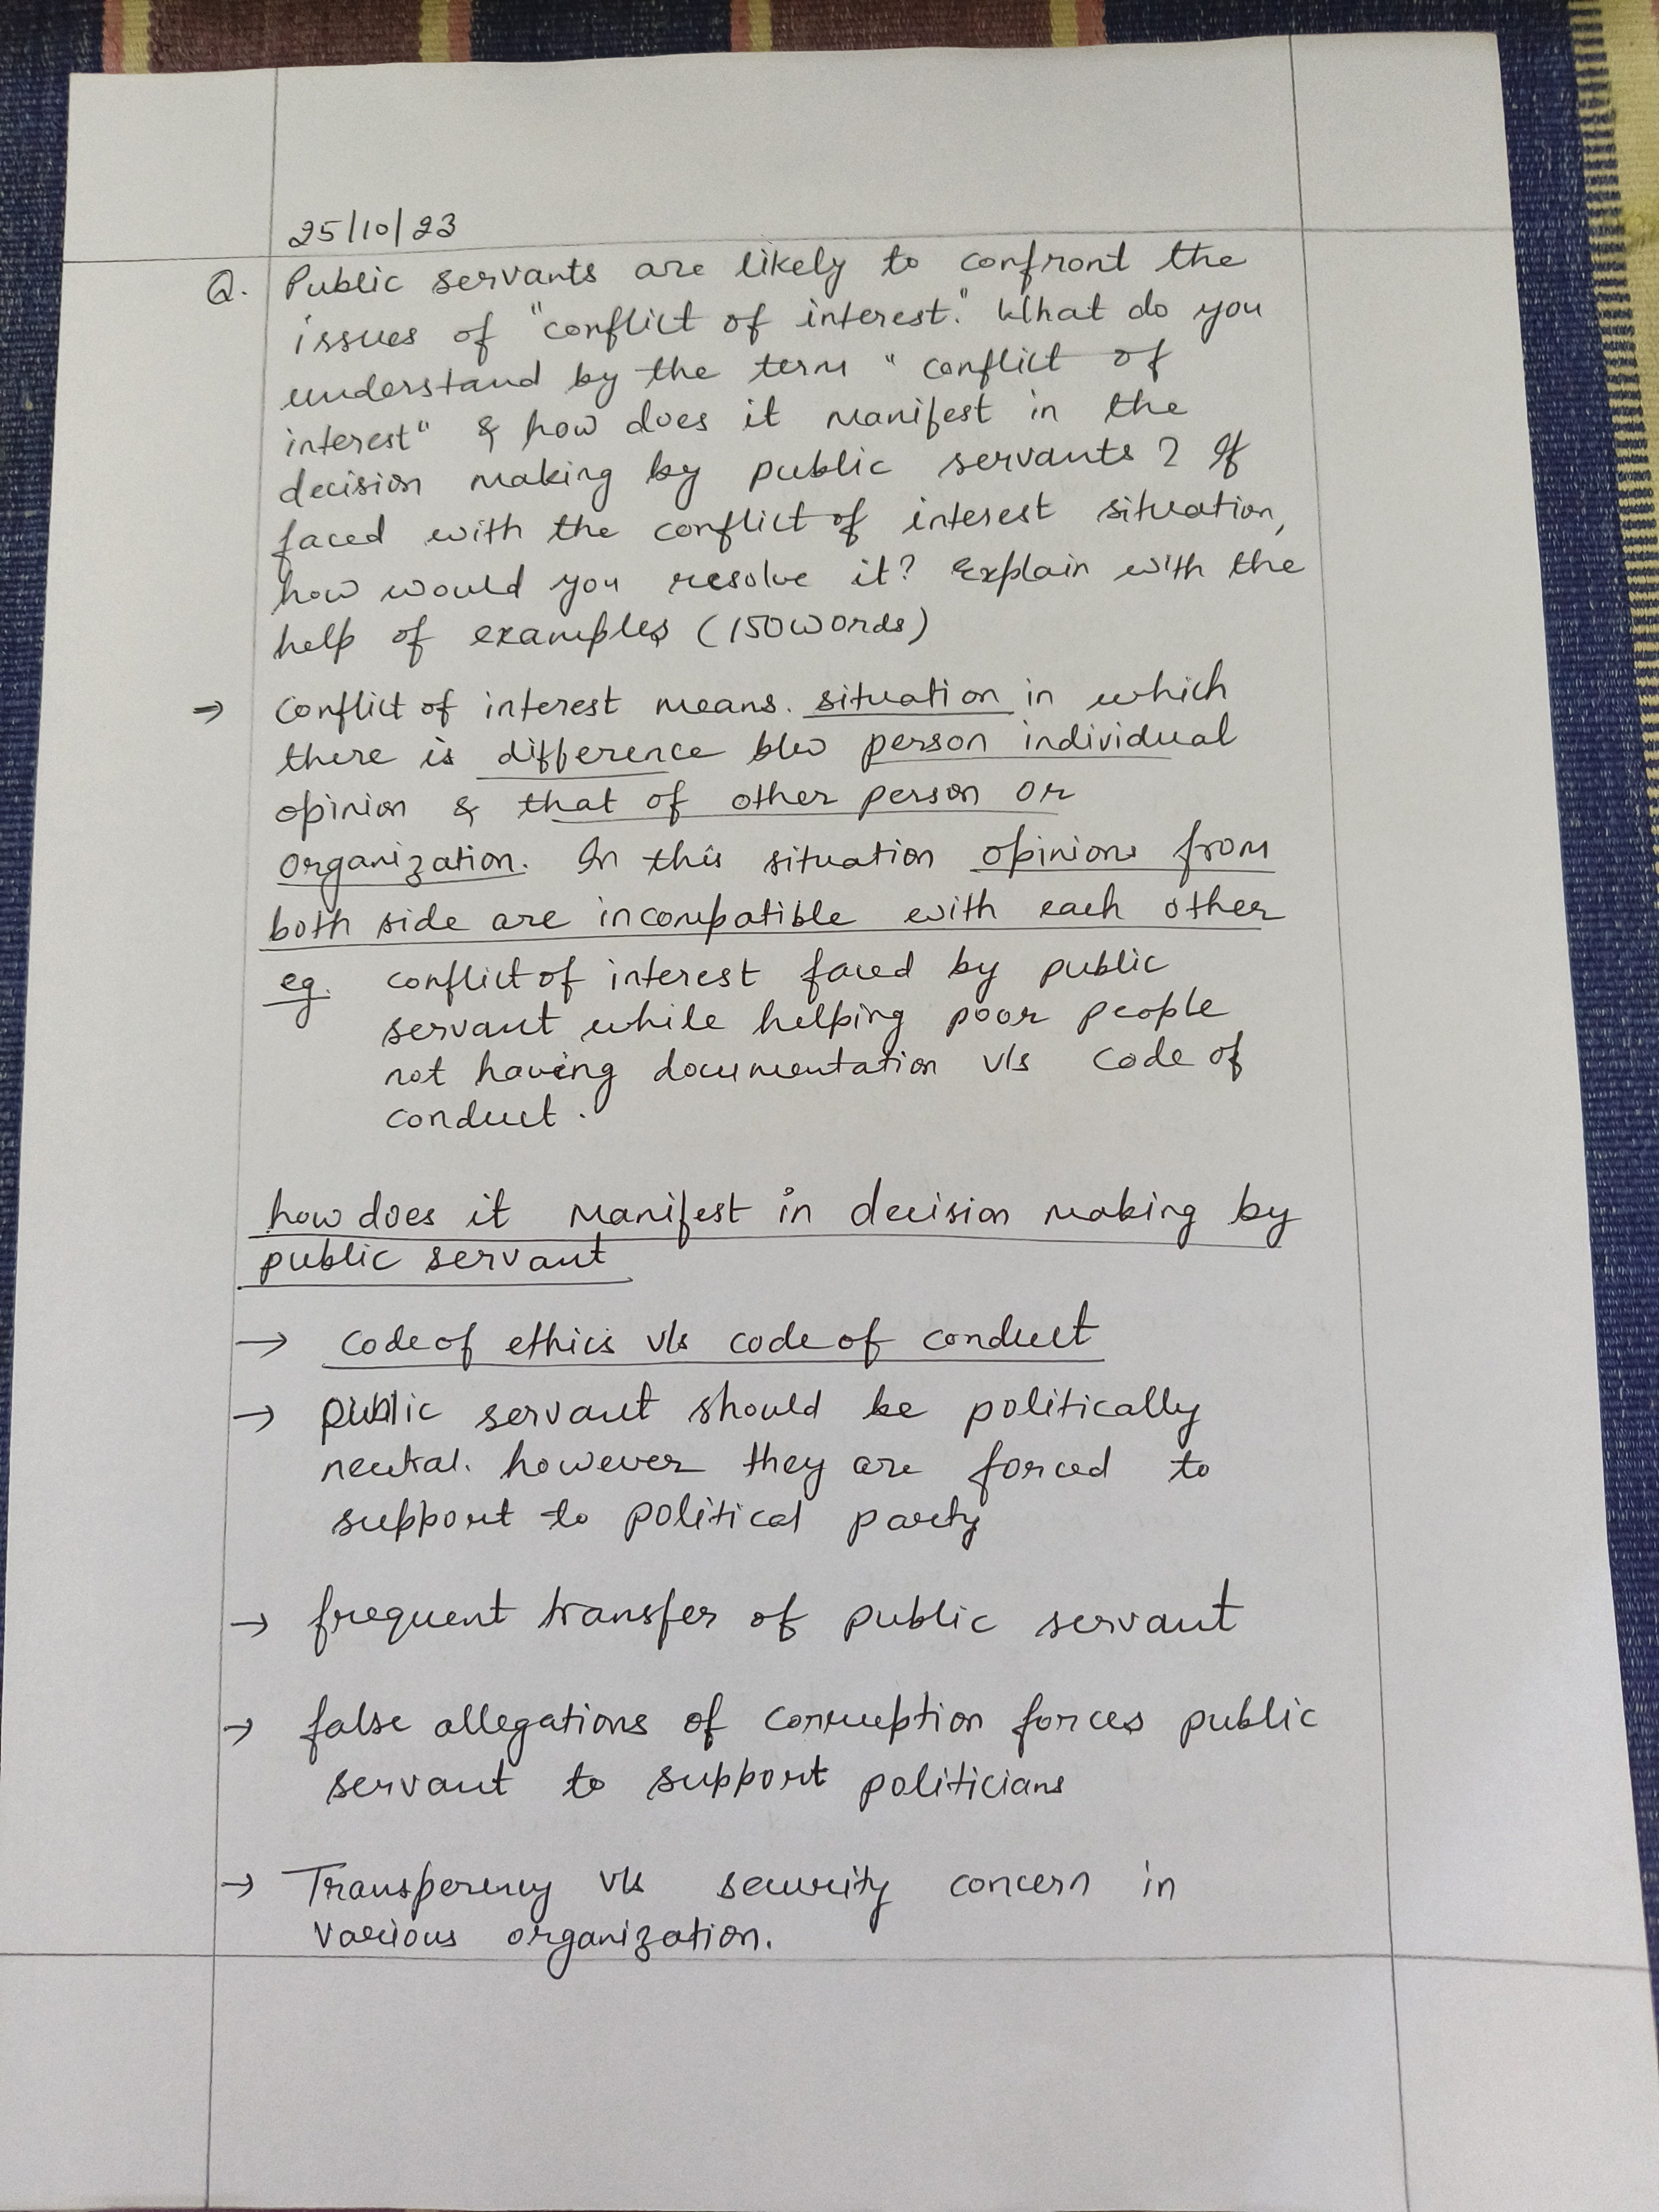 25/10/23
Q. Public servants are likely to confront the
issues of "conflict of interest." What do you
understand by the term "conflict of
interest" & how does it manifest in the
decision making by public servants? If
faced with the conflict of interest situation,
how would you resolve it? Explain with the
help of examples (150words)
⇒ conflict of interest means. situation in which
there is difference b/w person individual
opinion & that of other person or
organization. In this situation opinions from
both side are incompatible with each other
eg. conflict of interest faced by public
servant while helping poor people
not having documentation v/s code of
conduct.
how does it manifest in decision making by
public servant
→ code of ethics v/s code of conduct
→ public servant should be politically
neutral. however they are forced to
support to political party
→ frequent transfer of public servant
→ false allegations of corruption forces public
servant to support politicians
→ Transperency v/s security concern in
various organization.